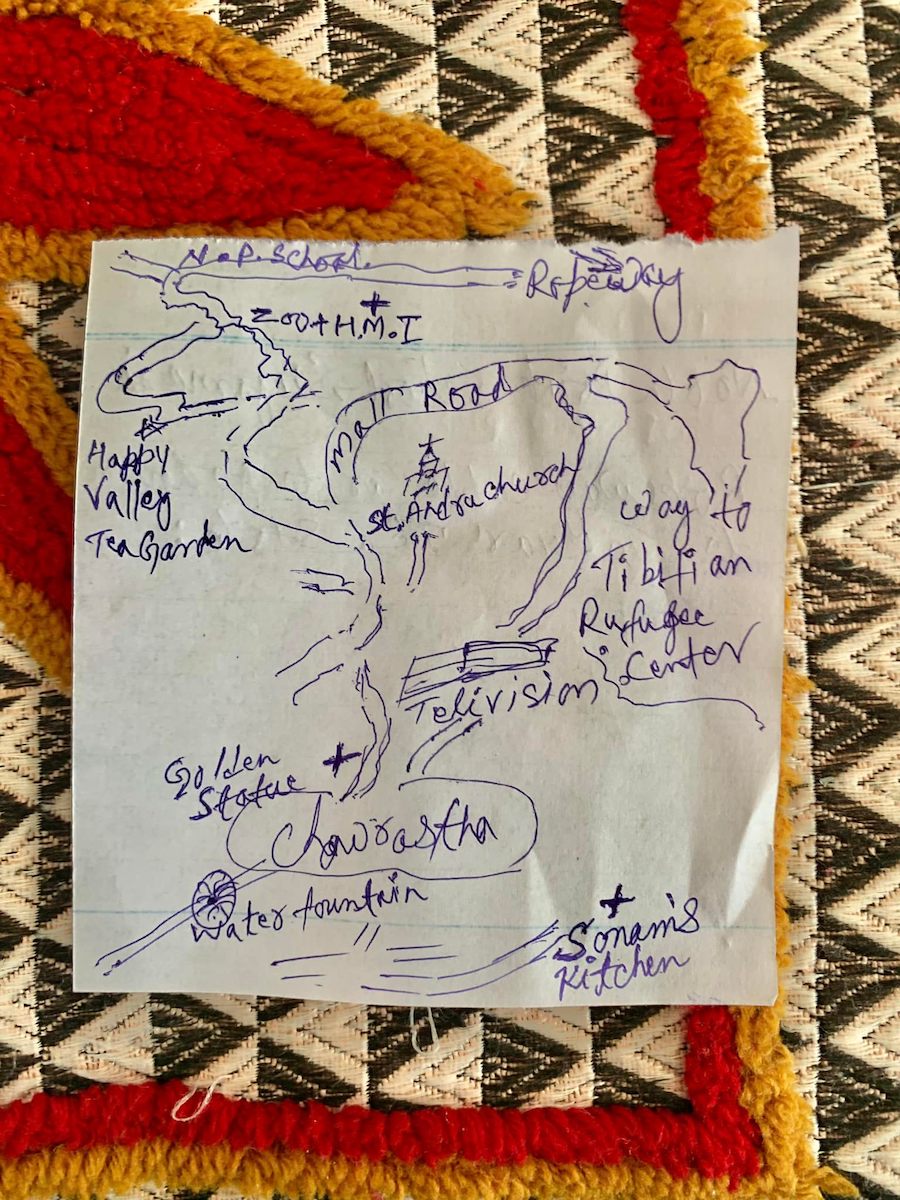 N.P. School.
Ropeway
Zoo + H.M.I
Mall Road
Happy
Valley
Tea Garden
St. Andra church
way to
Tibitian
Rufugee
Center
Telivision
Golden
Statue
Chowrastha
Water fountain
Sonam's
Kitchen